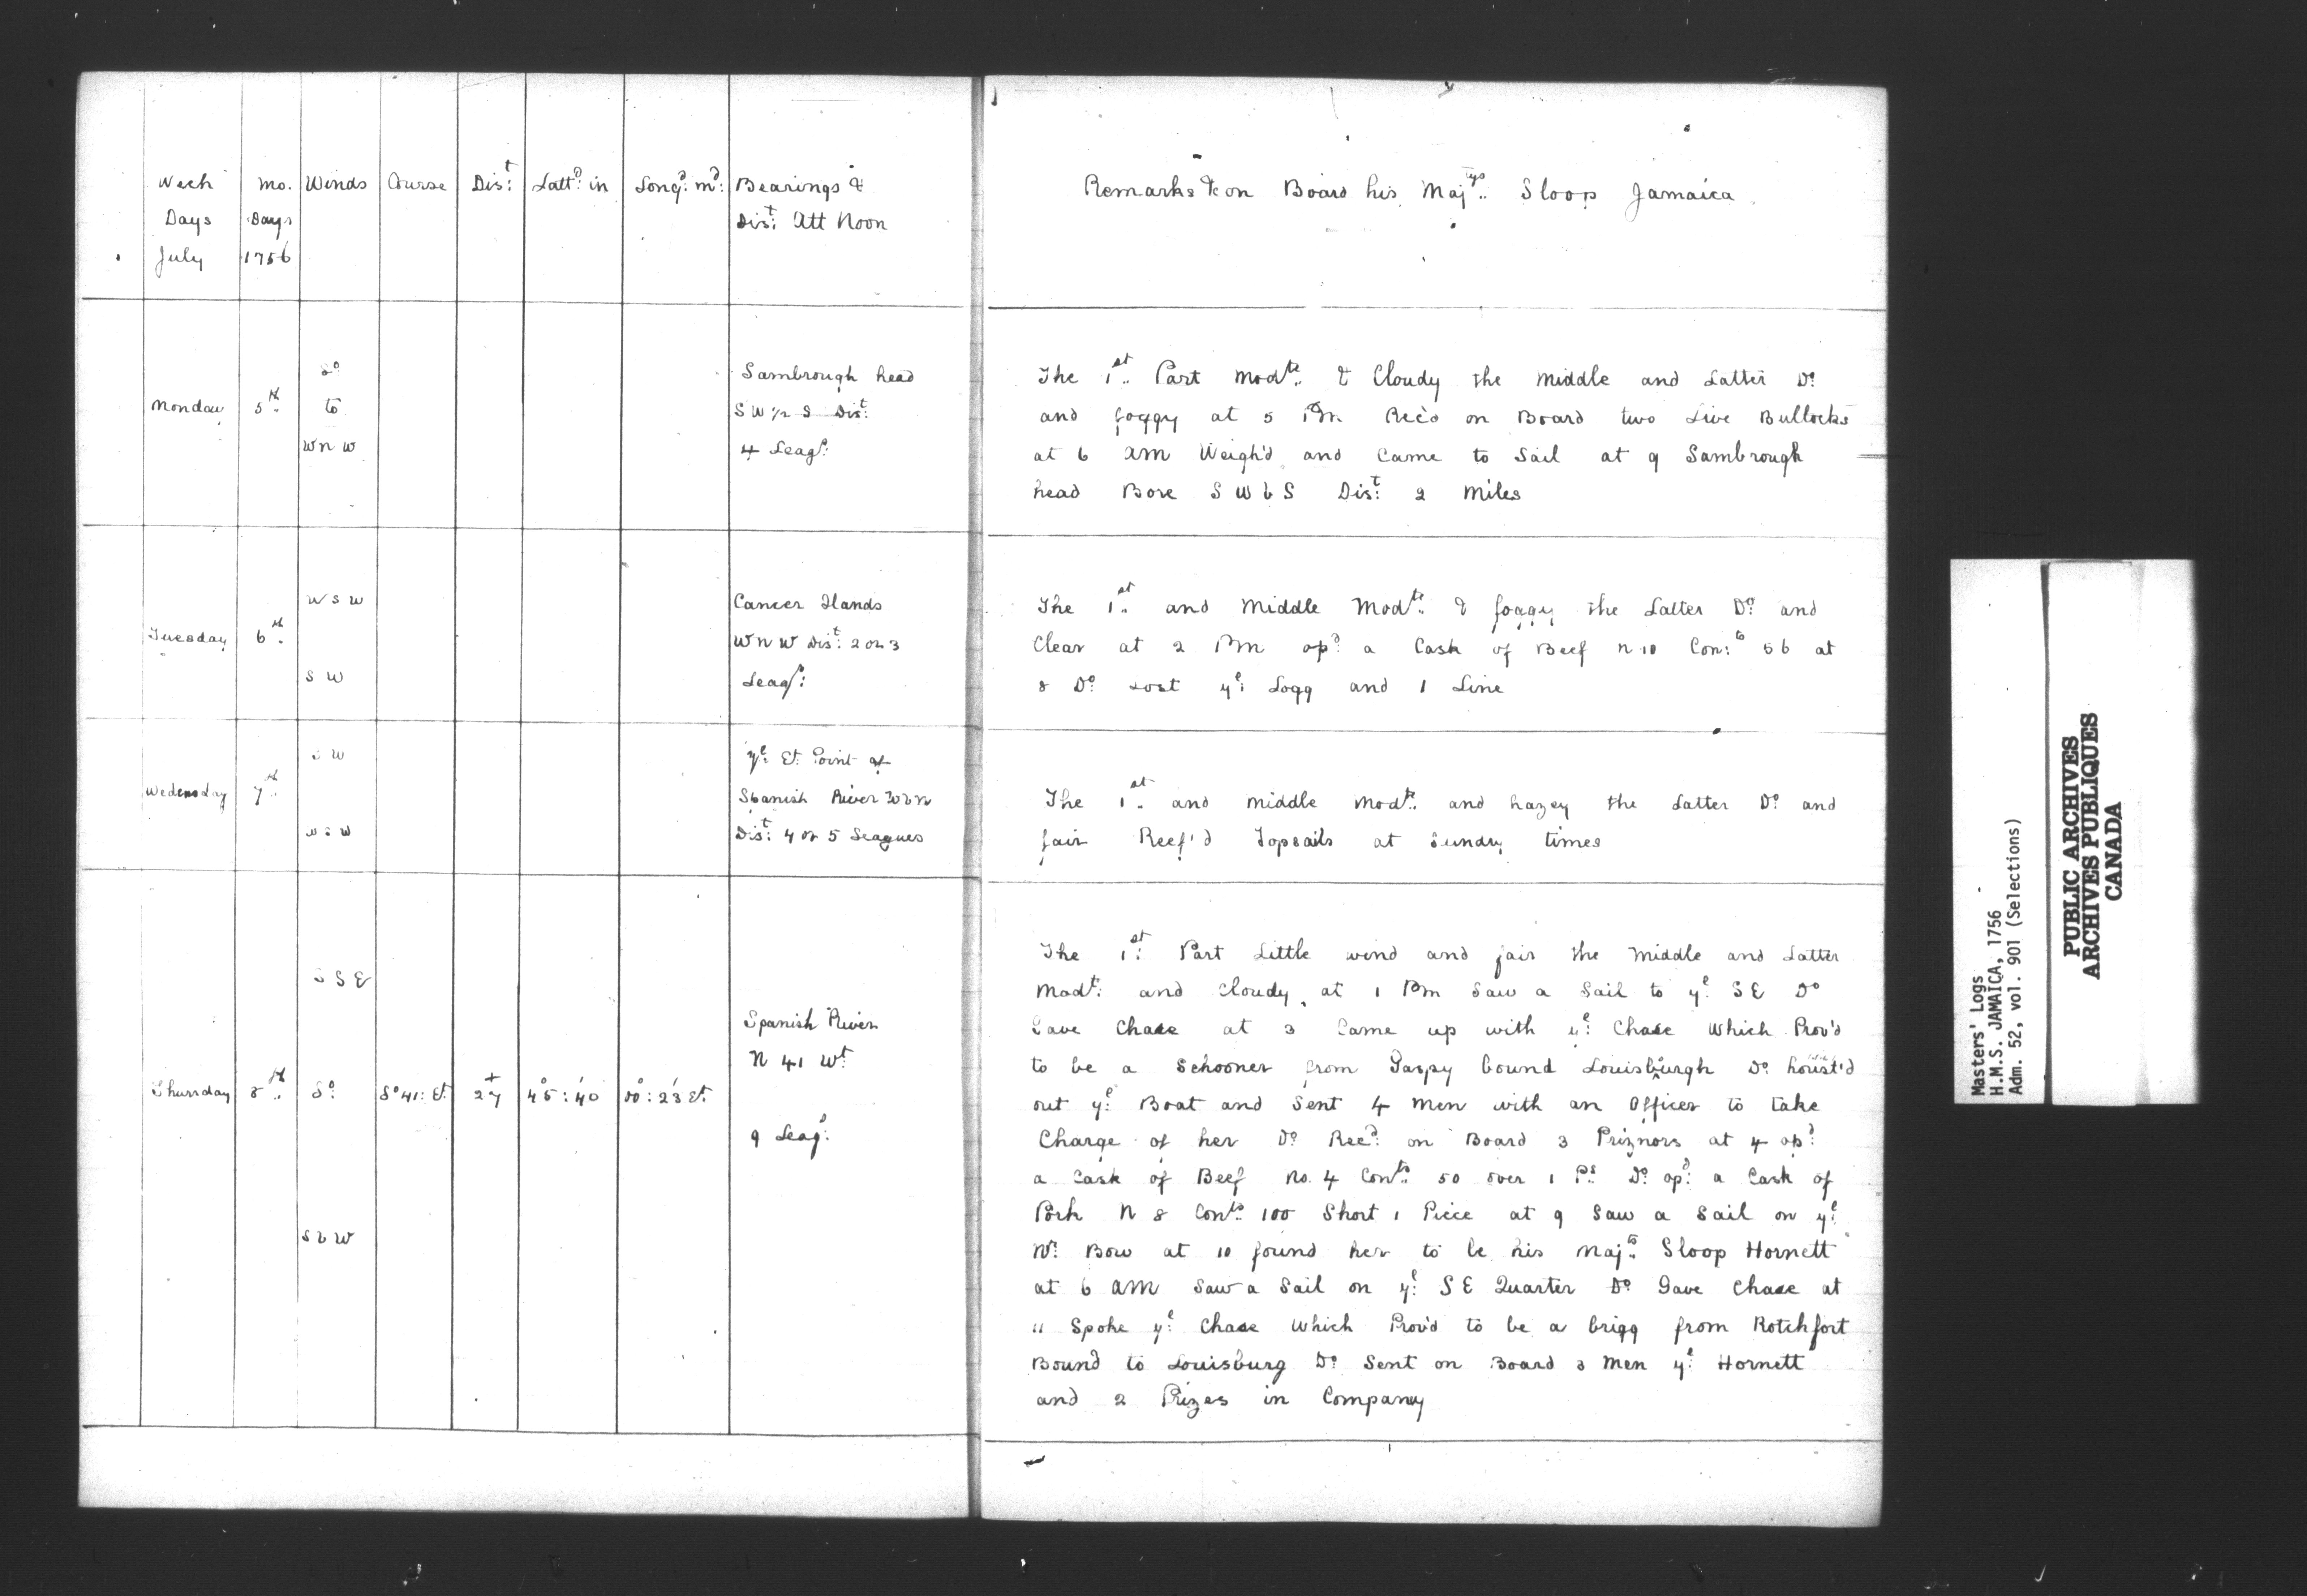 Week Mo. Winds Course Dis:t Latt:d in Long:d md: Bearings &
Days Days Dis:t Att Noon
July 1756
Remarks & on Board his Maj:tys Sloop Jamaica
Monday 5th So to WNW
Sambrough head
SW 1/2 S Dis:t
4 Leag:s
The 1st Part Mod:te & Cloudy the Middle and Latter Do
and foggy at 5 PM Rec'd on Board two Live Bullocks
at 6 AM Weigh'd and Came to Sail at 9 Sambrough
head Bore S W b S Dis:t 2 Miles
Tuesday 6th WSW SW
Cancer Ilands
WNW Dis:t 2 or 3
Leag:s
The 1st and Middle Mod:te & foggy the Latter Do and
Clear at 2 PM op:d a Cask of Beef N 10 Con:ts 56 at
8 Do Lost ye Logg and 1 Line
Wedensday 7th
ye Et Point of
Spanish River
Dis:t 4 or 5 Leagues
The 1st and Middle Mod:te and hazey the Latter Do and
fair Reef'd Topsails at Sundry times
Thursday 8th SSE So SbW So 41: Et 27 45°:40' 00°:23' Et
Spanish River
N 41 Wt
9 Leag:s
The 1st Part Little wind and fair the Middle and Latter
Mod:t and Cloudy at 1 PM Saw a Sail to ye SE Do
Gave Chase at 3 Came up with ye Chase Which Prov'd
to be a Schooner from Gaspy bound Louisburgh Do hoist'd
out ye Boat and Sent 4 Men with an Officer to take
Charge of her Do Rec:d on Board 3 Priznors at 4 op:d
a Cask of Beef No. 4 Con:ts 50 over 1 Ps Do op:d a Cask of
Pork N 8 Con:ts 100 Short 1 Piece at 9 Saw a Sail on ye
Wr Bow at 10 found her to be his Maj:ts Sloop Hornett
at 6 AM Saw a Sail on ye SE Quarter Do Gave Chase at
11 Spoke ye Chase Which Prov'd to be a brigg from Rotchfort
Bound to Louisburg Do Sent on Board 3 Men ye Hornett
and 2 Prizes in Company
Masters' Logs
H.M.S. JAMAICA, 1756
Adm. 52, vol. 901 (Selections)
PUBLIC ARCHIVES
ARCHIVES PUBLIQUES
CANADA